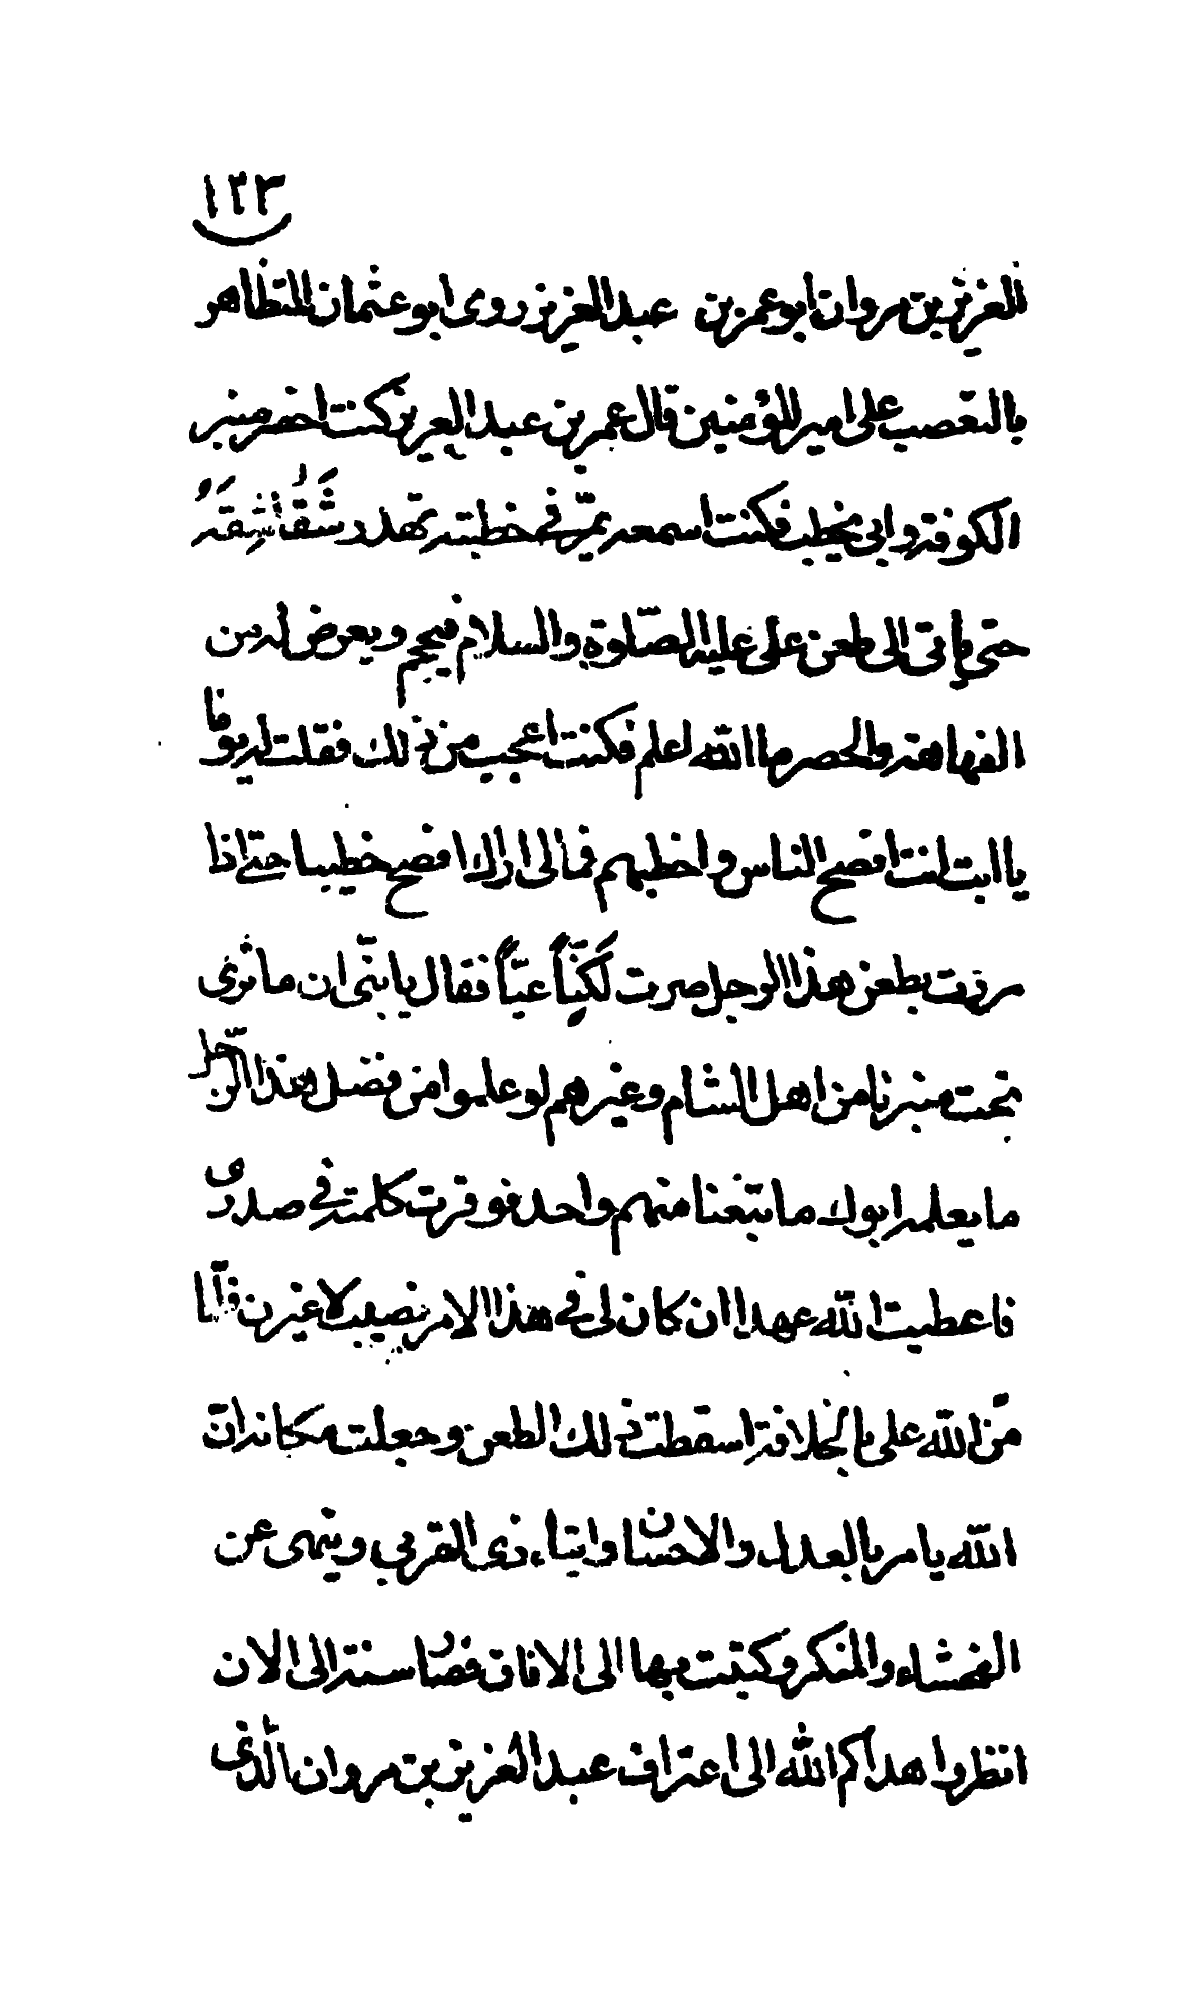 ١٢٣
العزيز بن مروان ابو عمر بن عبد العزيز روى ابو عثمان المتظاهر
بالتعصب على امير المؤمنين قال عمر بن عبد العزيز كنت احضر منبر
الكوفة وابى يخطب فكنت اسمعه يمرّ في خطبته تهدر شَقَاشِقَهُ
حتى ياتى الى طعن على عليه الصّلوة والسلام فيجمجم ويعرض له من
الفهاهة والحصر ما الله اعلم فكنت اعجب من ذلك فقلت له يوما
يا ابت انت افصح الناس واخطبهم فمالى اراك افصح خطيبا حتى اذا
مررت بطعن هذا الرجل صرت لَكِنّاً عيّاً فقال يا بنّى ان ما ترى
تحت منبرنا من اهل الشام وغيرهم لو علموا من فضل هذا الرّجل
ما يعلمه ابوك ما تبعنا منهم واحد فوقرت كلمته في صدرى
فاعطيت الله عهدا ان كان لى في هذا الامر نصيب لاغيرن فلّما
منّ الله على بالخلافة اسقطت ذلك الطعن وجعلت مكانه انّ
الله يامر بالعدل والاحسان وايتاء ذى القربي وينهى عن
الفحشاء والمنكر وكتبت بها الى الافاق فصار سنة الى الان
انظروا هداكم الله الى اعتراف عبد العزيز بن مروان الّذى